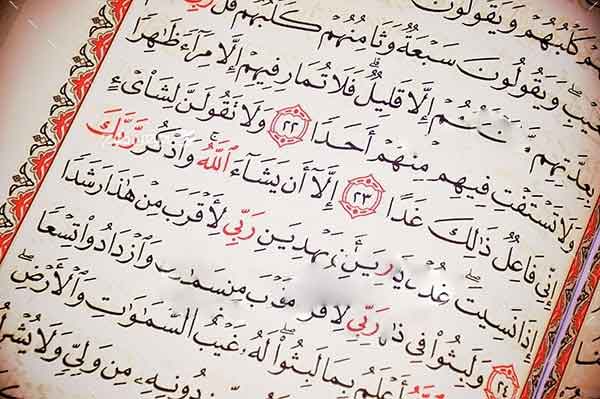 كَلْبُهُمْ وَيَقُولُونَ
وَيَقُولُونَ سَبْعَةٌ وَثَامِنُهُمْ كَلْبُهُمْ قُل رَّبِّي
بِعِدَّتِهِم إِلَّا قَلِيلٌ فَلَا تُمَارِ فِيهِمْ إِلَّا مِرَآءً ظَٰهِرًا
وَلَا تَسْتَفْتِ فِيهِم مِّنْهُمْ أَحَدًا ٢٢ وَلَا تَقُولَنَّ لِشَاْىْءٍ
إِنِّي فَاعِلٌ ذَٰلِكَ غَدًا ٢٣ إِلَّآ أَن يَشَآءَ ٱللَّهُ وَٱذْكُر رَّبَّكَ
إِذَا نَسِيتَ يَهْدِيَنِ رَبِّي لِأَقْرَبَ مِنْ هَٰذَا رَشَدًا
٢٤ وَلَبِثُوا۟ فِي رَبِّي وَٱزْدَادُوا۟ تِسْعًا
أَعْلَمُ بِمَا لَبِثُوا۟ لَهُۥ غَيْبُ ٱلسَّمَٰوَٰتِ وَٱلْأَرْضِ
دُونِهِۦ مِن وَلِيٍّ وَلَا